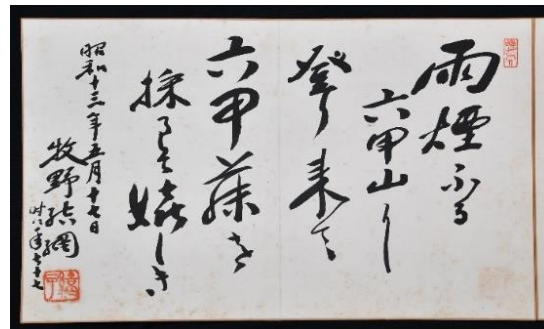 雨煙ふる
六甲山に
登り来て
六甲を
採るぞ嬉しき
昭和十三年五月十七日
牧野結網
年七十七